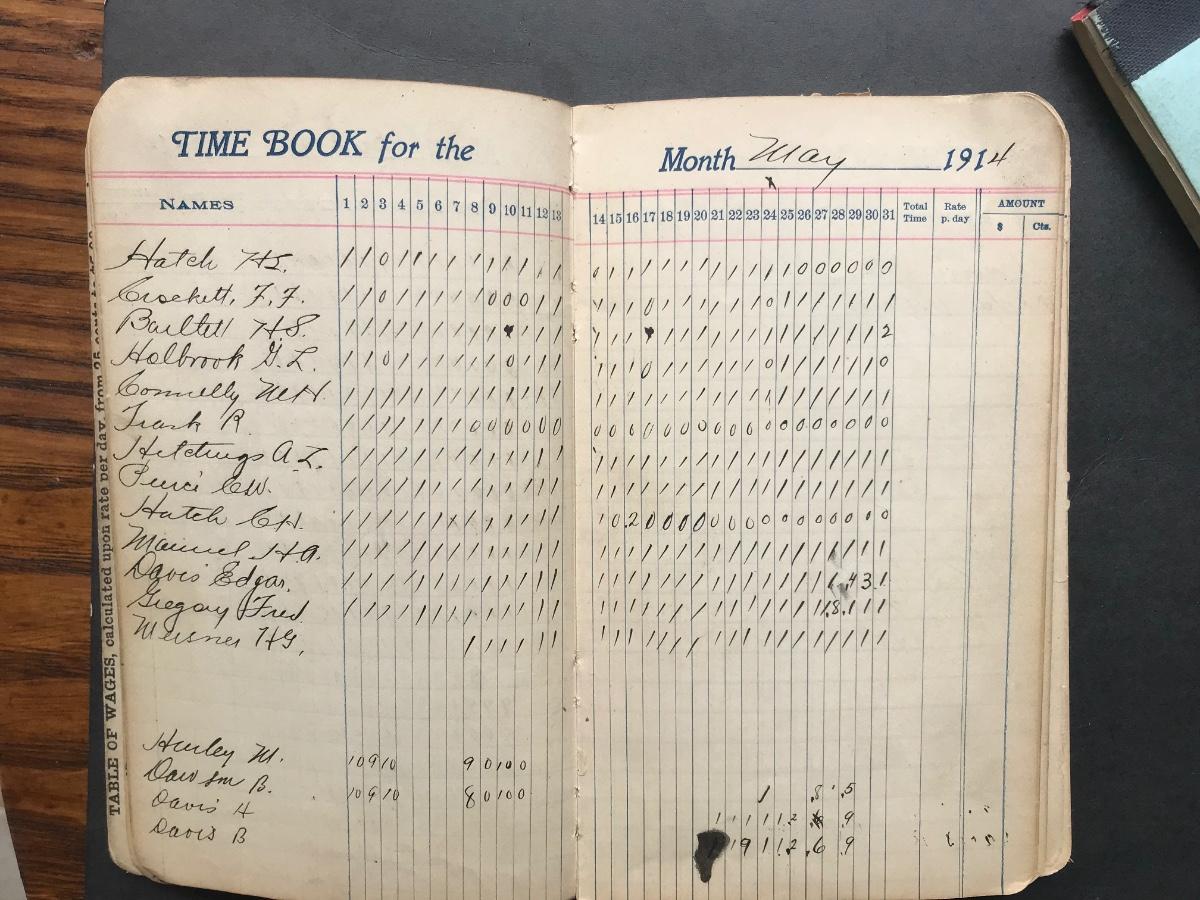 TIME BOOK for the Month May 1914
NAMES 1 2 3 4 5 6 7 8 9 10 11 12 13 14 15 16 17 18 19 20 21 22 23 24 25 26 27 28 29 30 31 Total Time Rate p. day AMOUNT $ Cts.
Hatch H.L. 1 1 0 1 1 1 1 1 1 1 1 1 1 0 1 1 1 1 1 1 1 1 1 1 1 0 0 0 0 0 0
Crockett, F. F. 1 1 0 1 1 1 1 1 0 0 0 1 1 1 1 1 0 1 1 1 1 1 1 0 1 1 1 1 1 1 1
Bartlett H.S. 1 1 1 1 1 1 1 1 1 1 1 1 1 1 1 1 1 1 1 1 1 1 1 1 1 1 1 2
Holbrook G. L. 1 1 0 1 1 1 1 1 1 0 1 1 1 1 1 1 0 1 1 1 1 1 1 0 1 1 1 1 1 1 0
Connelly M H 1 1 1 1 1 1 1 1 1 1 1 1 1 1 1 1 1 1 1 1 1 1 1 1 1 1 1 1 1 1 1
Trask R. 1 1 1 1 1 1 1 0 0 0 0 0 0 0 0 0 0 0 0 0 0 0 0 0 0 0 0 0 0 0 0
Hitchings A. L. 1 1 1 1 1 1 1 1 1 1 1 1 1 1 1 1 1 1 1 1 1 1 1 1 1 1 1 1 1 1 1
C.W. 1 1 1 1 1 1 1 1 1 1 1 1 1 1 1 1 1 1 1 1 1 1 1 1 1 1 1 1 1 1 1
Hatch C.H. 1 1 1 1 1 1 1 1 1 1 1 1 1 1 0 .2 0 0 0 0 0 0 0 0 0 0 0 0 0 0 0
H.A. 1 1 1 1 1 1 1 1 1 1 1 1 1 1 1 1 1 1 1 1 1 1 1 1 1 1 1 1 1 1 1
Davis Edgar. 1 1 1 1 1 1 1 1 1 1 1 1 1 1 1 1 1 1 1 1 1 1 1 1 1 1 1 1 .4 3 1
Gregory Fred. 1 1 1 1 1 1 1 1 1 1 1 1 1 1 1 1 1 1 1 1 1 1 1 1 1 1 1 .8 1 1 1
Meisner H G. 1 1 1 1 1 1 1 1 1 1 1 1 1 1 1 1 1 1 1 1 1 1 1 1
Hurley M. 10 9 10 9 0 10 0
Dawson B. 10 9 10 8 0 10 0 1 .8 .5
Davis H 1 1 1 1 1.2 .9
Davis B 1 9 1 1.2 .6 .9
TABLE OF WAGES, calculated upon rate per day, from 25